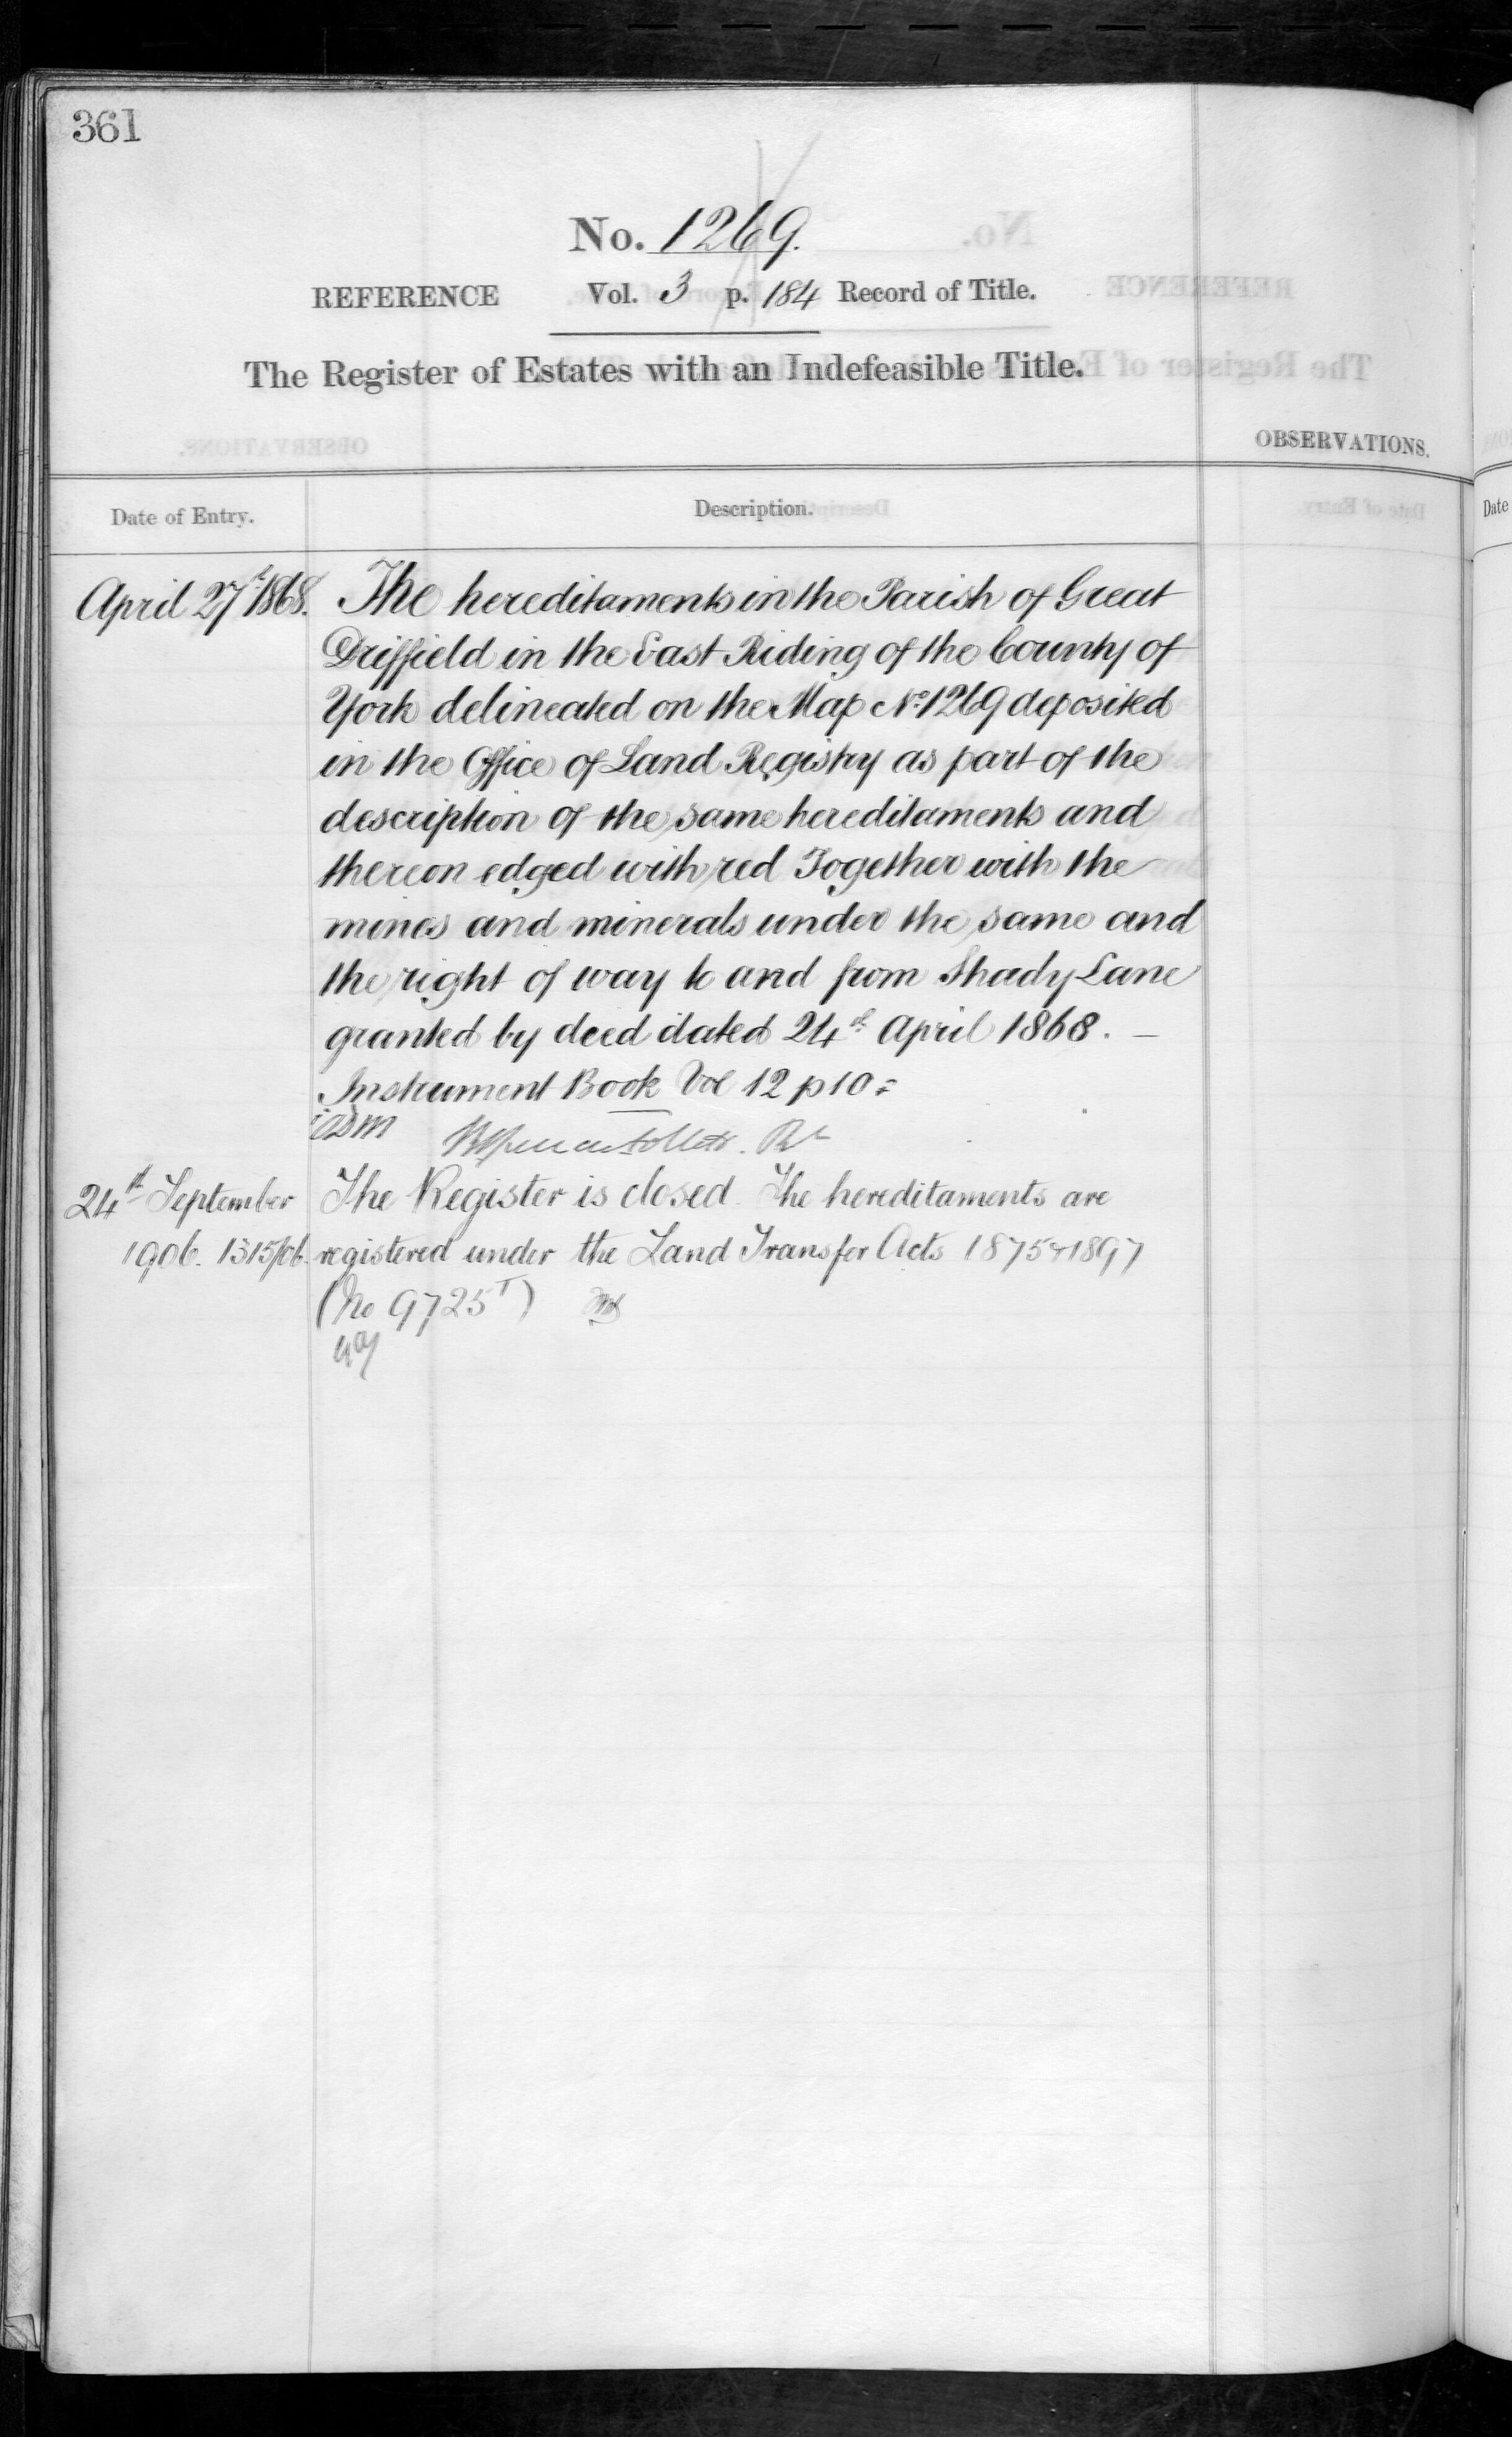 361
No. 1269.
REFERENCE Vol. 3 p. 184 Record of Title.
The Register of Estates with an Indefeasible Title.
OBSERVATIONS.
Date of Entry. Description.
April 27th 1868. The hereditaments in the Parish of Great
Driffield in the East Riding of the County of
York delineated on the Map No. 1269 deposited
in the Office of Land Registry as part of the
description of the same hereditaments and
thereon edged with red Together with the
mines and minerals under the same and
the right of way to and from Shady Lane
granted by deed dated 24th April 1868. —
Instrument Book Vol 12 p 10 =
24th September The Register is closed. The hereditaments are
1906. 1315/06. registered under the Land Transfer Acts 1875 & 1897
(No 9725T)
Date